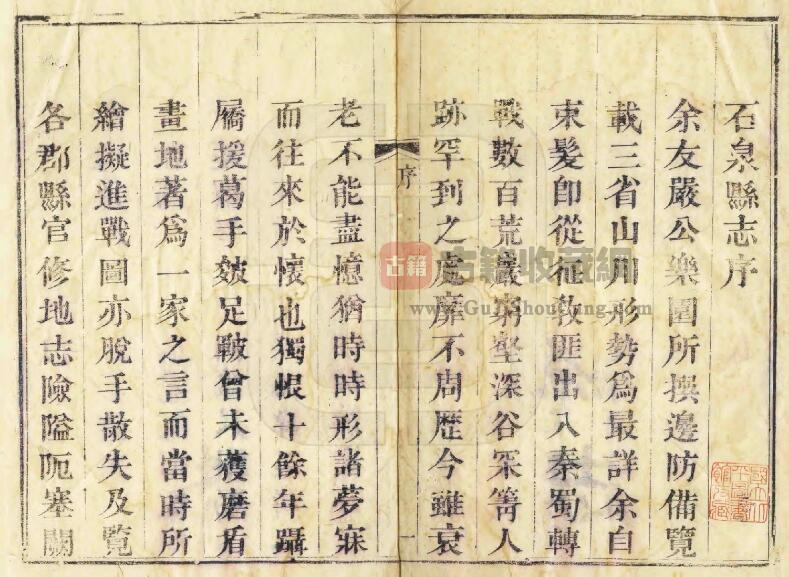 石泉縣志序
余友嚴公樂園所撰邊防備覽
載三省山川形勢爲最詳余自
束髮卽從征教匪出入秦蜀轉
戰數百荒巖窮壑深谷罙箐人
跡罕到之處靡不周歷今雖衰
序
一
老不能盡憶猶時時形諸夢寐
而往來於懷也獨悵十餘年躡
屩援葛手皴足皸曾未獲磨盾
畫地著爲一家之言而當時所
繪擬進戰圖亦脫手散失及覽
各郡縣官修地志險隘阨塞關
古籍
古籍收藏網
www.GuJiShouCang.com